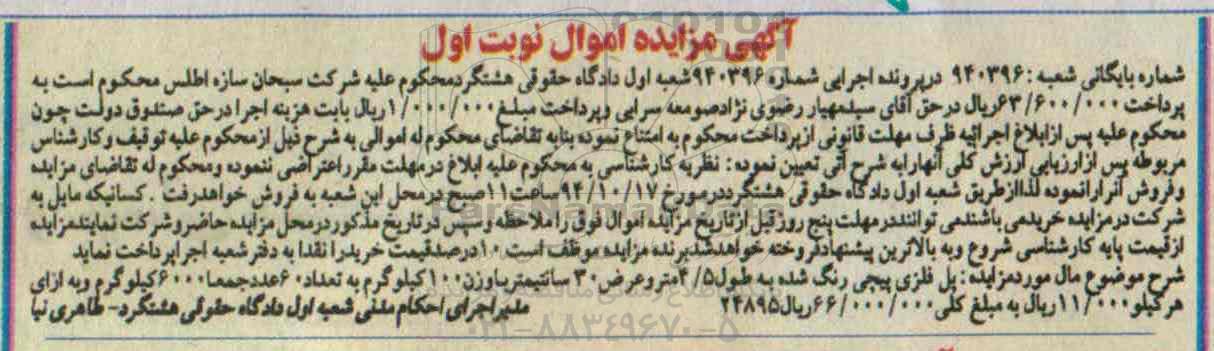 آگهی مزایده اموال نوبت اول
شماره بایگانی شعبه: ۹۴۰۳۹۶ درپرونده اجرایی شماره ۹۴۰۳۹۶شعبه اول دادگاه حقوقی هشتگردمحکوم علیه شرکت سبحان سازه اطلس محکوم است به
پرداخت ۶۳/۶۰۰/۰۰۰ریال درحق آقای سیدمهیار رضوی نژادصومعه سرایی وپرداخت مبلغ۱/۰۰۰/۰۰۰ریال بابت هزینه اجرا درحق صندوق دولت چون
محکوم علیه پس ازابلاغ اجرائیه ظرف مهلت قانونی ازپرداخت محکوم به امتناع نموده بنابه تقاضای محکوم له اموالی به شرح ذیل ازمحکوم علیه توقیف وکارشناس
مربوطه پس ازارزیابی ارزش کلی آنهارابه شرح آتی تعیین نموده: نظریه کارشناسی به محکوم علیه ابلاغ درمهلت مقرراعتراضی ننموده ومحکوم له تقاضای مزایده
وفروش آنرارانموده لذاازطریق شعبه اول دادگاه حقوقی هشتگرددرمورخ ۹۴/۱۰/۱۷ساعت۱۱صبح درمحل این شعبه به فروش خواهدرفت . کسانیکه مایل به
شرکت درمزایده خریدمی باشندمی توانند‌درمهلت پنج روزقبل ازتاریخ مزایده اموال فوق را ملاحظه وسپس درتاریخ مذکوردرمحل مزایده حاضروشرکت نمایندمزایده
ازقیمت پایه کارشناسی شروع وبه بالاترین پیشنهادفروخته خواهدشدبرنده مزایده موظف است ۱۰درصدقیمت خریدرا نقدا به دفترشعبه اجراپرداخت نماید
شرح موضوع مال موردمزایده: پل فلزی پیچی رنگ شده به طول۴/۵متروعرض۳۰ سانتیمترباوزن۱۰۰کیلوگرم به تعداد۶۰عددجمعا۶۰۰۰کیلوگرم وبه ازای
هرکیلو۱۱/۰۰۰ریال به مبلغ کلی۶۶/۰۰۰/۰۰۰ریال۲۴۸۹۵ مدیراجرای احکام مدنی شعبه اول دادگاه حقوقی هشتگرد- طاهری نیا
۰۲۱-۸۸۳۴۹۶۷۰-۵